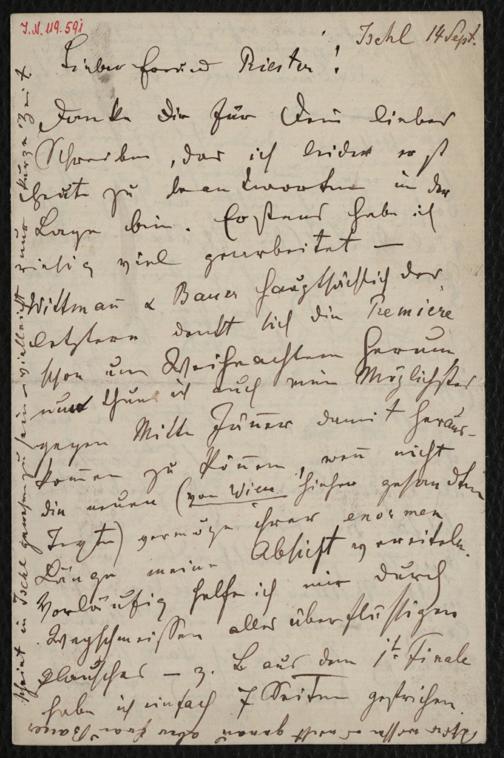 I.N. 119.591
Ischl 14 Sept.
Lieber Freund Priester!
Danke Dir für Dein liebes
Schreiben, das ich leider erst
heute zu beantworten in der
Lage bin. Erstens habe ich
riesig viel gearbeitet —
Wittmañ & Bauer hauptsächlich der
letztere denkt sich die Premiere
schon um Weihnachten herum,
nun thue ich auch mein Möglichstes
gegen Mitte Jäner damit heraus-
kommen zu können, weñ nicht
die neuen (von Wien hieher gesandten
Texte) vermöge ihrer enormen
Länge meine Absicht vereiteln.
Vorläufig helfe ich mir durch
Wegschmeissen alles überflüssigen
plausches — z. B aus dem 1t. Finale
habe ich einfach 7 Seiten gestrichen.
aber Frau Bauer
scheint in Ischl gewesen zu sein — vielleicht nur kurze Zeit